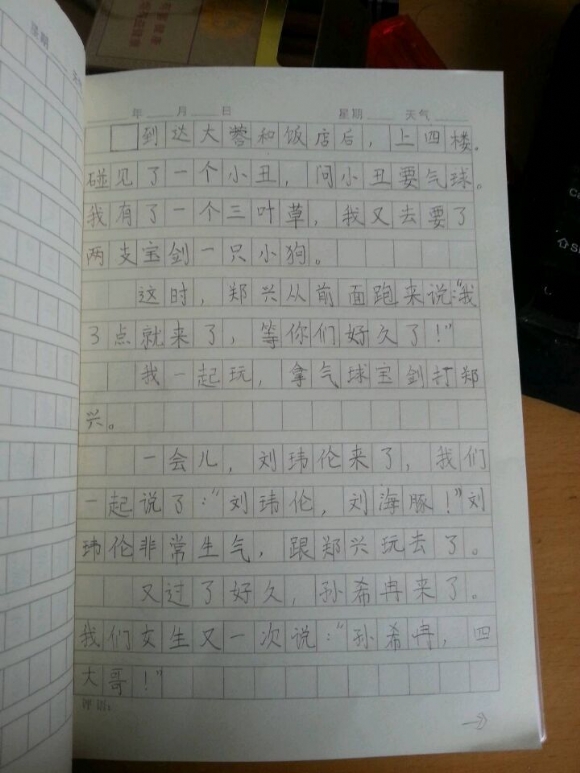 星期 天气
年 月 日 星期 天气
到达大蓉和饭店后，上四楼。
碰见了一个小丑，问小丑要气球。
我有了一个三叶草，我又去要了
两支宝剑一只小狗。
这时，郑兴从前面跑来说：“我
3点就来了，等你们好久了！”
我一起玩，拿气球宝剑打郑
兴。
一会儿，刘玮伦来了，我们
一起说了：“刘玮伦，刘海豚！”刘
玮伦非常生气，跟郑兴玩去了。
又过了好久，孙希冉来了。
我们女生又一次说：“孙希冉，四
大哥！”
评语：